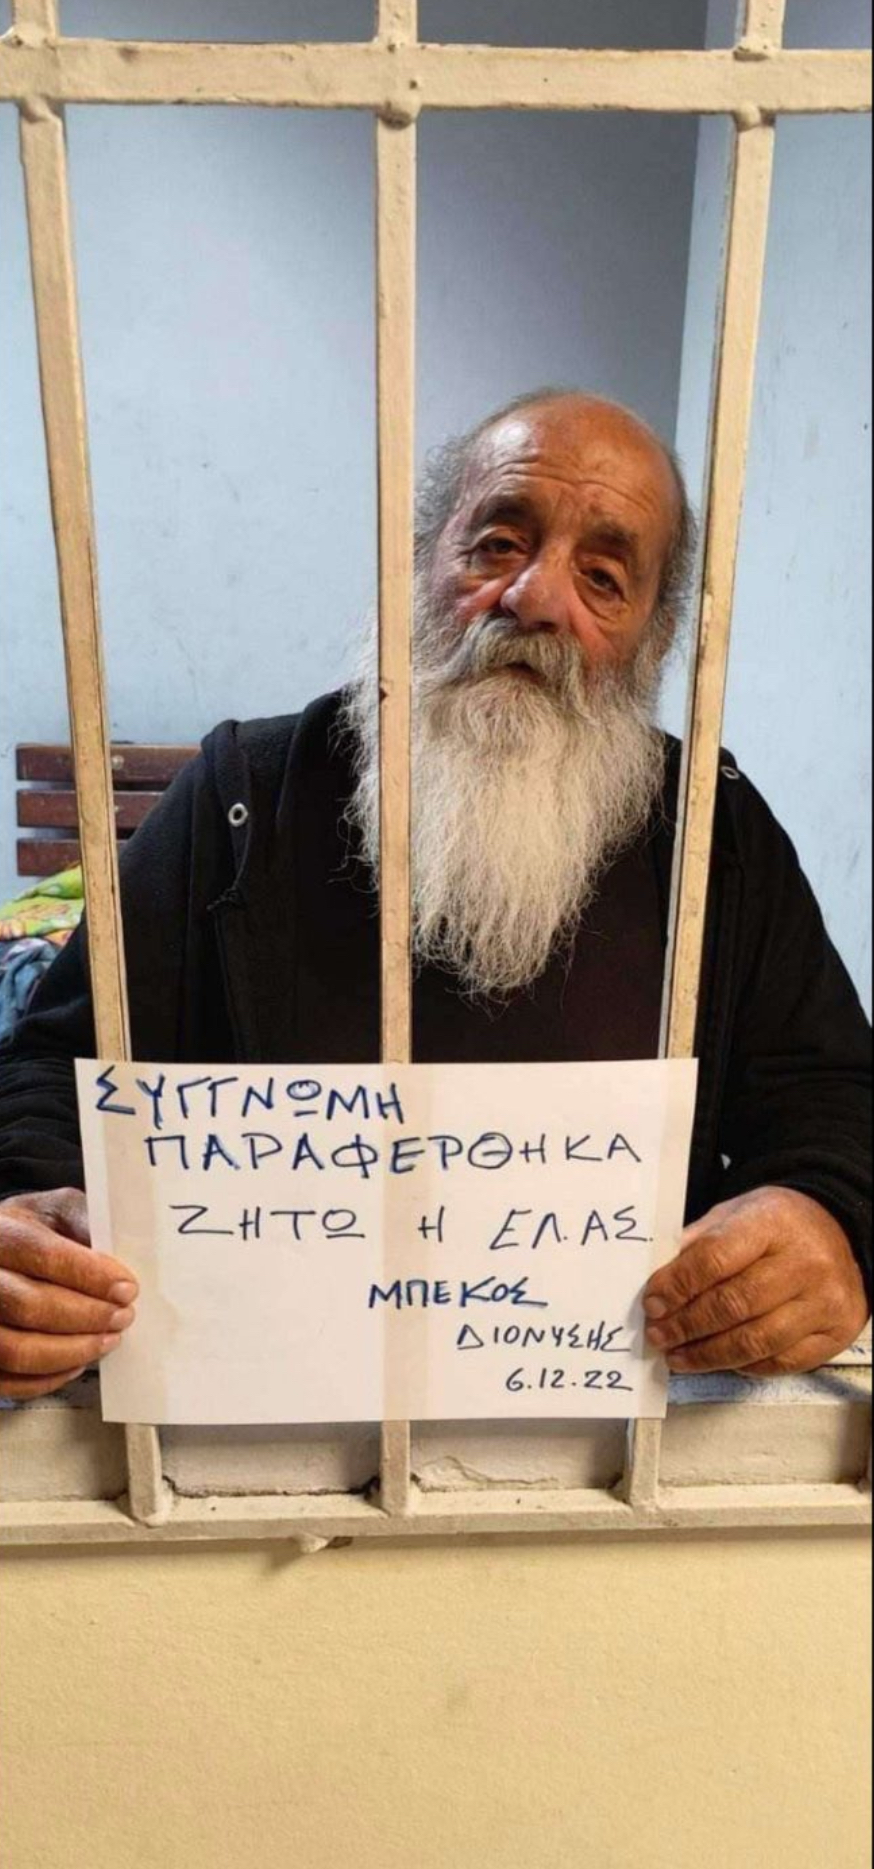 ΣΥΓΓΝΩΜΗ
ΠΑΡΑΦΕΡΘΗΚΑ
ΖΗΤΩ Η ΕΛ.ΑΣ.
ΜΠΕΚΟΣ
ΔΙΟΝΥΣΗΣ
6.12.22